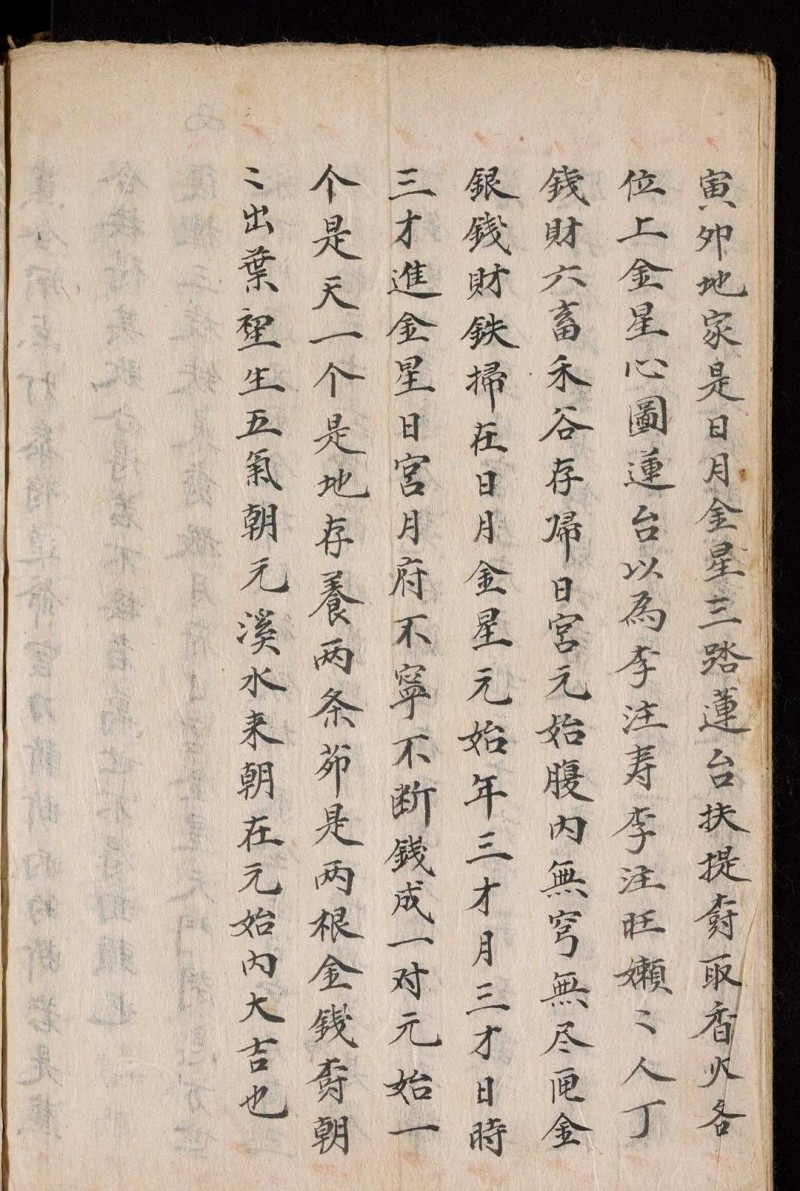 寅夘地家是日月金星三踏蓮台扶提奝取香火各
位上金星心圖蓮台以為李注寿李注旺嬾〻人丁
錢財六畜禾谷存歸日宮元始腹内無穹無尽匣金
銀錢財鉄掃在日月金星元始年三才月三才日時
三才進金星日宮月府不寧不断錢成一对元始一
个是天一个是地存養两条茆是两根金錢奝朝
〻出葉裡生五氣朝元溪水来朝在元始内大吉也